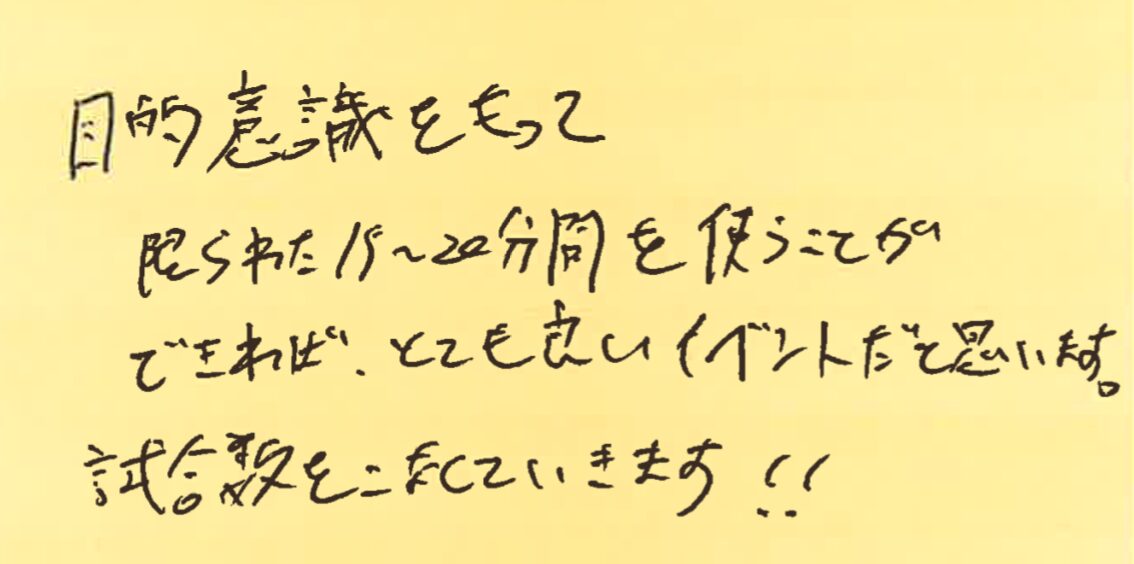 目的意識をもって
限られた15〜20分間を使うことが
できれば、とても良いイベントだと思います。
試合数をこなしていきます!!